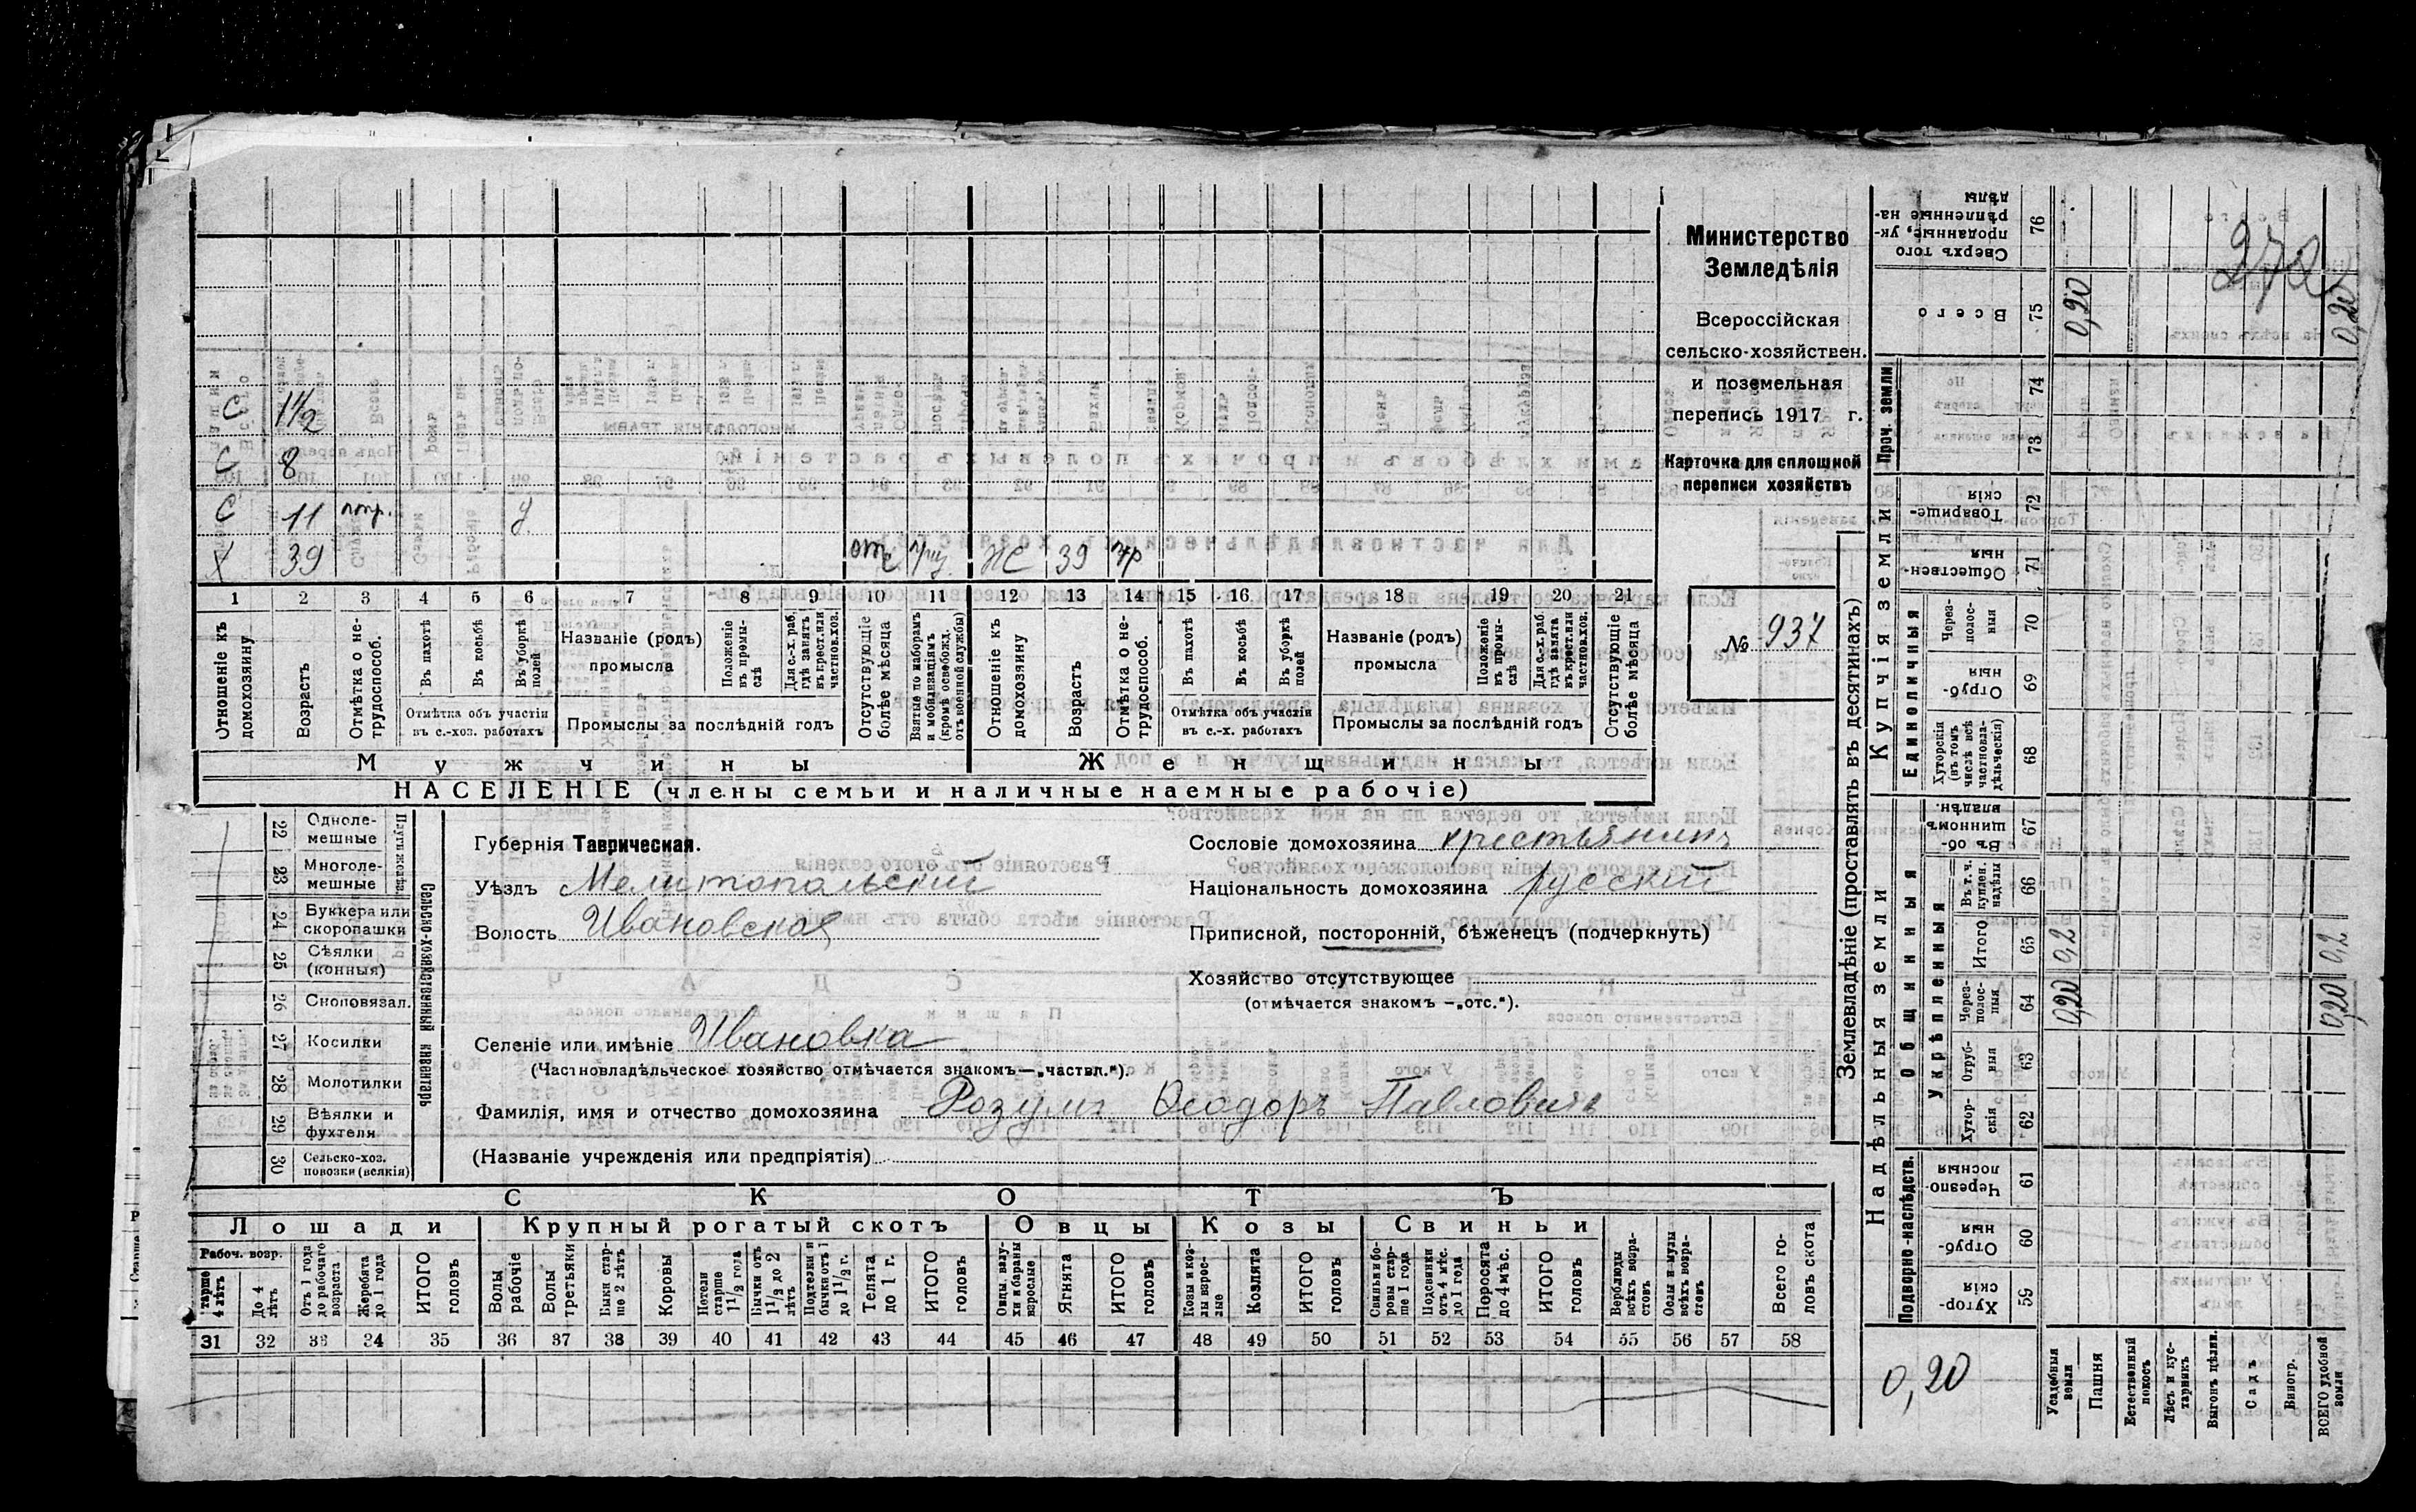 272
Министерство
Земледѣлія
Всероссійская
сельско-хозяйствен.
и поземельная
перепись 1917 г.
Карточка для сплошной
переписи хозяйствъ
№ 937
С 1 1/2
С 8
С 11 У
Х 39 ЖС 39
1 2 3 4 5 6 7 8 9 10 11 12 13 14 15 16 17 18 19 20 21
Отношеніе къ домохозяину
Возрастъ
Отмѣтка о не-трудоспособ.
Въ пахотѣ
Въ косьбѣ
Въ уборкѣ полей
Отмѣтка объ участіи
въ с.-хоз. работахъ
Названіе (родъ)
промысла
Положеніе въ промы-слѣ
Для с.-х. раб. гдѣ занятъ въ крест. или частнов. хоз.
Промыслы за послѣдній годъ
Отсутствующіе болѣе мѣсяца
Взятые по наборамъ и мобилизаціямъ (кромѣ освобожд. отъ военной службы)
Отношеніе къ домохозяину
Возрастъ
Отмѣтка о не-трудоспособ.
Въ пахотѣ
Въ косьбѣ
Въ уборкѣ полей
Отмѣтка объ участіи
въ с.-х. работахъ
Названіе (родъ)
промысла
Положеніе въ промы-слѣ
Для с.-х. раб. гдѣ занята въ крест. или частнов. хоз.
Промыслы за послѣдній годъ
Отсутствующіе болѣе мѣсяца
Мужчины Женщины
НАСЕЛЕНІЕ (члены семьи и наличные наемные рабочіе)
Сельско-хозяйственный инвентарь
22 Одноле-мешные
23 Многоле-мешные
24 Буккера или скоропашки
25 Сѣялки (конныя)
26 Сноповязал.
27 Косилки
28 Молотилки
29 Вѣялки и фухтеля
30 Сельско-хоз. повозки (всякія)
Губернія Таврическая.
Уѣздъ Мелитопольскій
Волость Ивановская
Сословіе домохозяина крестьянинъ
Національность домохозяина русскій
Приписной, посторонній, бѣженецъ (подчеркнуть)
Хозяйство отсутствующее
(отмѣчается знакомъ —„отс.“).
Селеніе или имѣніе Ивановка
(Частновладѣльческое хозяйство отмѣчается знакомъ—„частвл.“).
Фамилія, имя и отчество домохозяина Розумъ Ѳеодоръ Павловичъ
(Названіе учрежденія или предпріятія)
СКОТЪ
Лошади Крупный рогатый скотъ Овцы Козы Свиньи
Рабоч. возр.
тарше 4 лѣтъ
До 4 лѣтъ
Отъ 1 года до рабочаго возраста
Жеребята до 1 года
ИТОГО головъ
Волы рабочіе
Волы третьяки
Быки стар-ше 2 лѣтъ
Коровы
Нетели старше 1 1/2 года
Бычки отъ 1 1/2 до 2 лѣтъ
Подтелки и бычки отъ 1 до 1 1/2 г.
Телята до 1 г.
ИТОГО головъ
Овцы, валу-хи и бараны взрослые
Ягнята
ИТОГО головъ
Козы и коз-лы взрос-лые
Козлята
ИТОГО головъ
Свиньи и бо-ровы стар-ше 1 года
Подсвинки отъ 4 мѣс. до 1 года
Поросята до 4 мѣс.
ИТОГО головъ
Верблюды всѣхъ возра-стовъ
Ослы и мулы всѣхъ возра-стовъ
Всего го-ловъ скота
31 32 33 34 35 36 37 38 39 40 41 42 43 44 45 46 47 48 49 50 51 52 53 54 55 56 57 58
Землевладѣніе (проставлять въ десятинахъ)
Купчія земли
Надѣльныя земли
Проч. земли
Единоличныя
Общинныя
Укрѣпленныя
Подворно-наслѣдств.
Сверхъ того проданные, ук-рѣпленные на-дѣлы 76
Всего 75 0,20 0,20
74
73
Товарище-скія 72
Обществен-ныя 71
Через-полос-ныя 70
Отруб-ныя 69
Хуторскія (въ томъ числѣ всѣ частновла-дѣльческія) 68
Въ об-щинномъ владѣн. 67
Въ т. ч. куплен. надѣлы 66
Итого 65 0,2 0,2
Через-полос-ныя 64 0,20 0,20
Отруб-ныя 63
Хутор-скія 62
Черезпо-лосныя 61
Отруб-ныя 60
Хутор-скія 59
0,20
Усадебныя земли
Пашня
Естественный покосъ
Лѣсъ и кус-тарникъ
Выгонъ цѣлин.
Садъ
Виногр.
ВСЕГО удобной земли